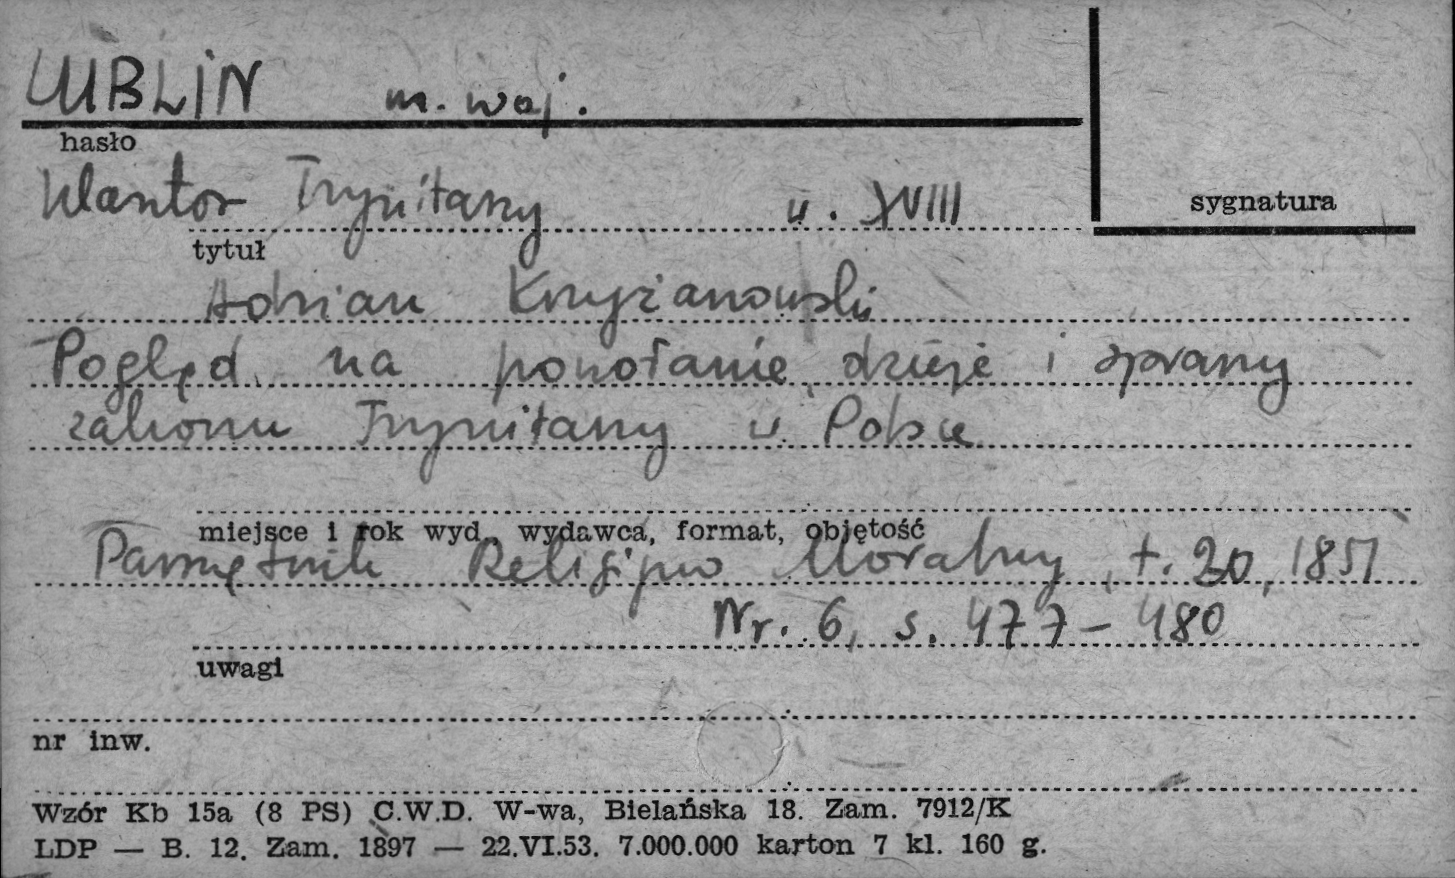 LUBLIN m. woj.
hasło
klasztor Trynitarzy w. XVIII
sygnatura
tytuł
Adrian Krzyżanowski
Pogląd na powołanie, dzieje i sprawy
zakonu Trynitarzy w Polsce
miejsce i rok wyd., wydawca, format, objętość
Pamiętnik Religijno Moralny, t. 20, 1851
Nr. 6, s. 477-480
uwagi
nr inw.
Wzór Kb 15a (8 PS) C.W.D. W-wa, Bielańska 18. Zam. 7912/K
LDP — B. 12. Zam. 1897 — 22.VI.53. 7.000.000 karton 7 kl. 160 g.